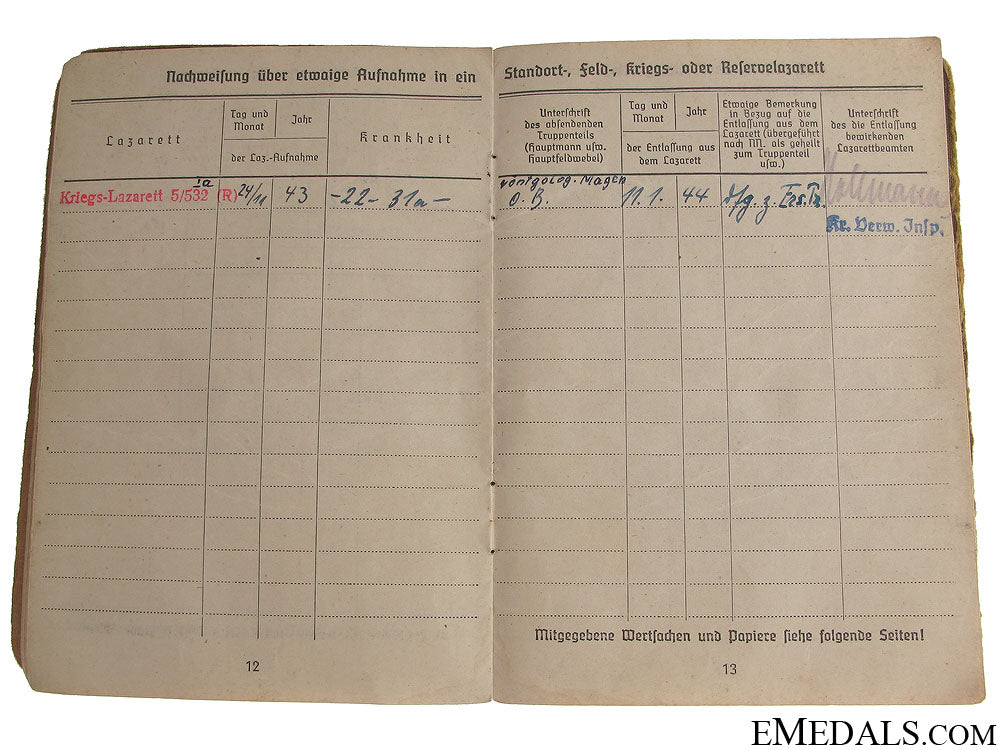 Nachweisung über etwaige Aufnahme in ein
Lazarett
Tag und
Monat
Jahr
der Laz.-Aufnahme
Krankheit
Ia
Kriegs-Lazarett 5/532 (R)
24/11
43
-22- 31a-
12
Standort-, Feld-, Kriegs- oder Reservelazarett
Unterschrift
des absendenden
Truppenteils
(Hauptmann usw.
Hauptfeldwebel)
Tag und
Monat
Jahr
der Entlassung aus
dem Lazarett
Etwaige Bemerkung
in Bezug auf die
Entlassung aus dem
Lazarett (übergeführt
nach NN. als geheilt
zum Truppenteil
usw.)
Unterschrift
des die Entlassung
bewirkenden
Lazarettbeamten
Röntgolog. Magen
o. B.
11.1.
44
z. Ers. Tr.
Kr. Verw. Insp.
Mitgegebene Wertsachen und Papiere siehe folgende Seiten!
13
EMEDALS.COM